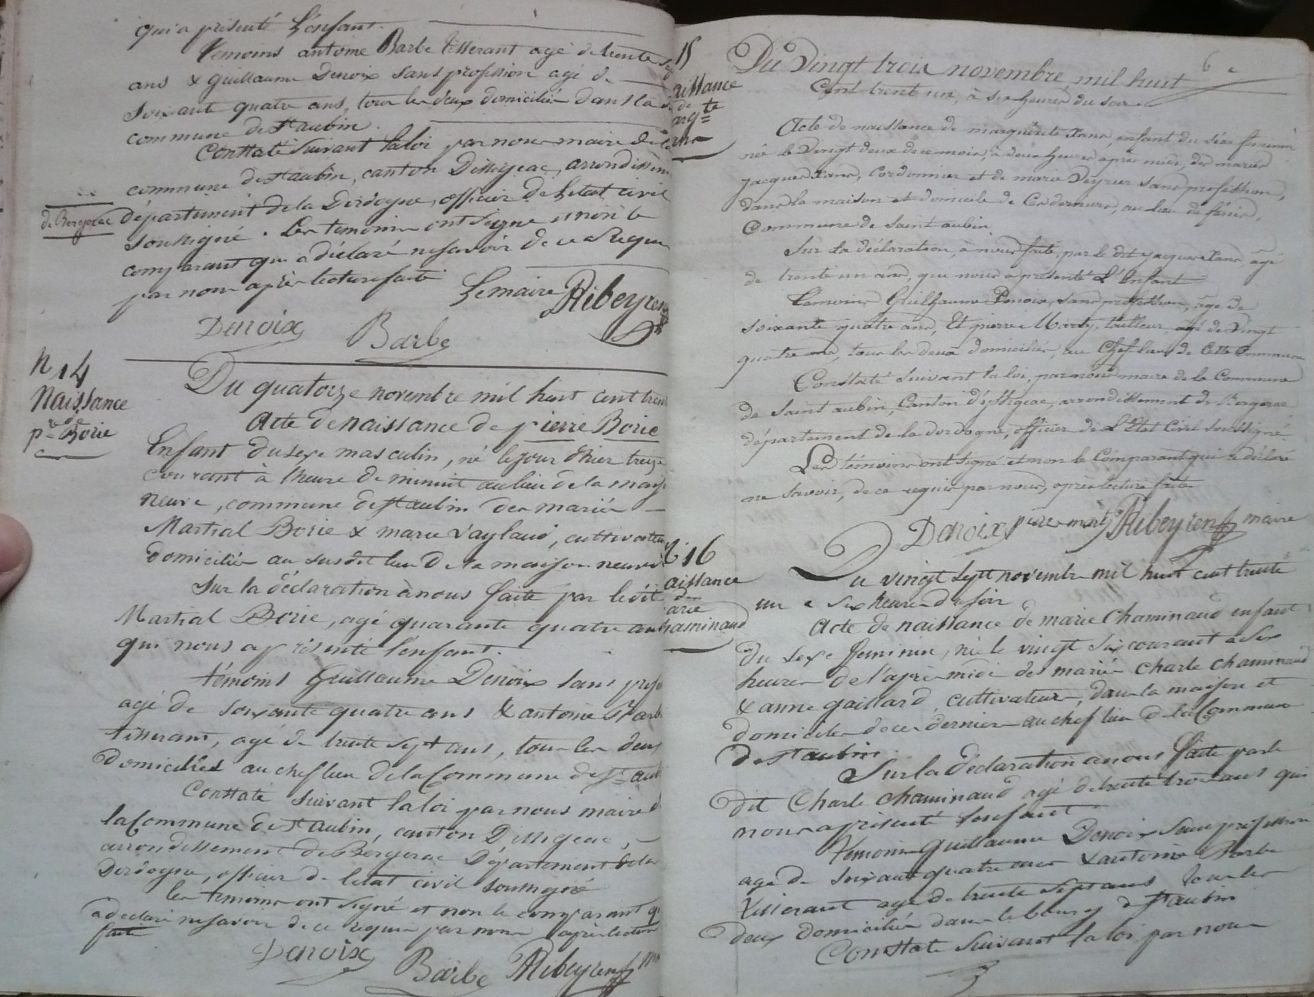 qui a présenté l'enfant.
témoins antoine Barbe tisserant agé de trente sept
ans & guillaume Denoix sans profession agé de
soixant quatre ans, tous les deux domiciliés dans la
commune de st aubin.
Constaté suivant la loi par nous maire de la
commune de st aubin, canton Dissigeac, arrondissem
de Bergerac
département de la Dordogne, officier de letat civil
soussigné. Les temoins ont signé & non le
comparant qui a déclaré ne savoir de ce Requis
par nous après lecture faite
Le maire Ribeyren
Denoix Barbe
N 14
Naissance
de
pre Borie
Du quatorze novembre mil huit cent tren
Acte de naissance de pierre Borie
Enfant du sexe masculin, né le jour d'hier treize
courant à lheure de minuit au lieu de la maison
neuve, commune de st aubin des mariés
Martial Borie & marie Vaylaud, cultivateurs
domiciliés au susdit lieu de la maison neuve
Sur la déclaration à nous faite par le dit
Martial Borie, agé quarante quatre ans
qui nous a présenté l'enfant.
témoins Guillaume Denoix sans profe
agé de soixante quatre ans & antoine Barb
tisserant, agé de trente sept ans, tous les deux
Domiciliés au chef lieu de la Commune de St aub
Constaté suivant la loi par nous maire d
la Commune de St Aubin, canton Dissigeac,
arrondissement de Bergerac Département de la
Dordogne, officier de letat civil soussigné
les temoins ont signé et non le comparant qui
a declaré ne savoir de ce requis par nous après lecture
faite
Denoix Barbe Ribeyren m
15
aissance
de
argte
6
Du Vingt trois novembre mil huit
Cent trente un, à six heures du soir
Acte de naissance de marguerite Tane, enfant du sexe féminin
née le Vingt deux de ce mois, à deux heures après midi, des mariés
Jacques Tane, Cordonnier et de marie Veyrier Sans profession,
dans la maison et domicile de Ces derniers, au lieu de
Commune de Saint aubin.
Sur la déclaration, à nous faite, par le dit Jacques Tane, agé
de trente un ans, qui nous a présenté L'Enfant
Temoins Guilhaume Denoix, sans profession, âgé de
soixante quatre ans, Et pierre Marty, tailleur, agé de Vingt
quatre ans, tous les deux domiciliés, au Chef lieu de Cette Commune
Constaté suivant la loi, par nous maire de la Commune
de Saint aubin, Canton d'Issigeac, arrondissement de Bergerac
département de la Dordogne, officier de L'Etat Civil Soussigné
Les témoins ont signé et non le Comparant qui a déclaré
ne Savoir, de ce requis par nous, après lecture faite
Denoix pierre marty Ribeyren maire
N° 16
aissance
de
arie
haminaud
Du vingt sept novembre mil huit cent trente
un à six heures du soir
Acte de naissance de marie Chaminaud enfant
du sexe feminin, né le vingt six courant à six
heures de l'après midi des mariés charle chaminaud
& anne gaillard, cultivateurs, dans la maison et
domicile de ces derniers au chef lieu de la Commune
de st aubin.
Sur la déclaration a nous faite par le
dit Charle chaminaud agé de trente trois ans qui
nous a présenté l'enfant
temoins guillaume Denoix sans profession
agé de soixante quatre ans & antoine Barbe
tisserant agé de trente sept ans tous les
deux domiciliés dans le bourg de st aubin
Constaté suivant la loi par nous